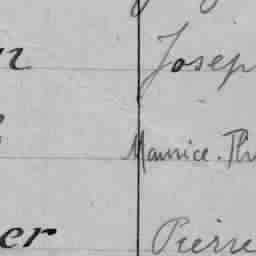 Josep
Maurice. Th
er Pierre